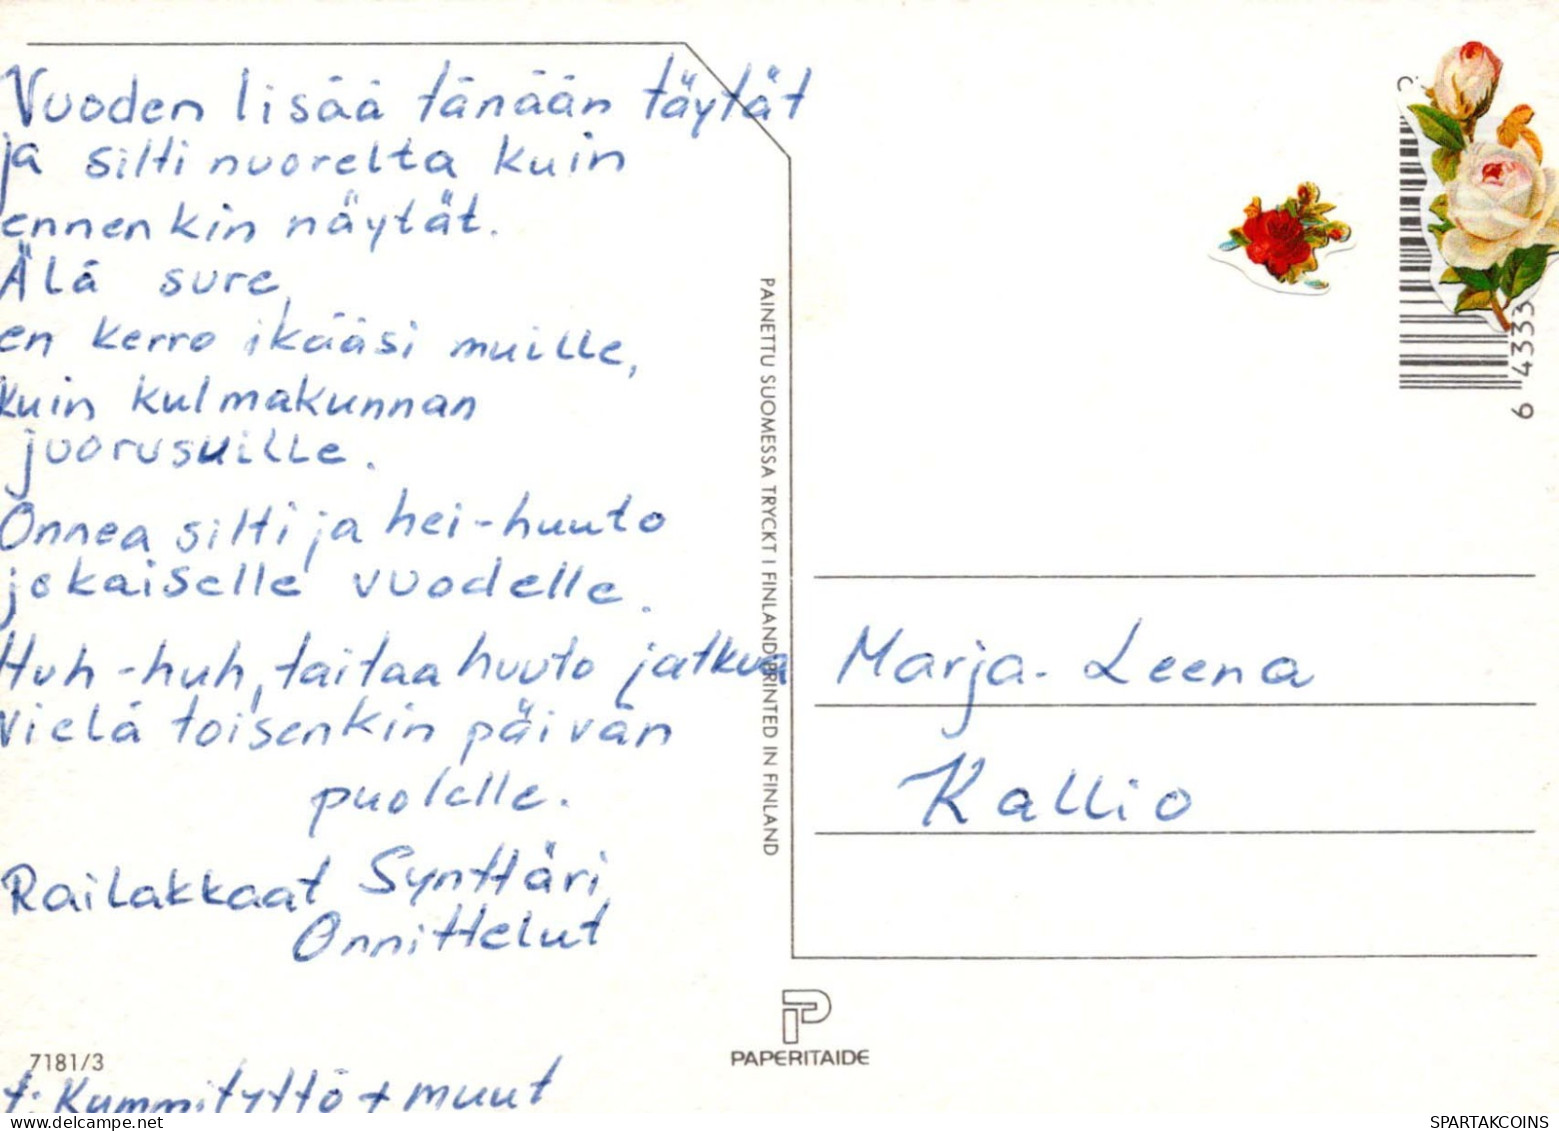 Vuoden lisää tänään täytät
ja silti nuorelta kuin
ennenkin näytät.
Älä sure,
en kerro ikääsi muille,
kuin kulmakunnan
juorusuille.
Onnea silti ja hei-huuto
jokaiselle vuodelle.
Huh-huh, taitaa huuto jatkua
vielä toisenkin päivän
puolelle.
Railakkaat Synttäri
Onnittelut
7181/3
t: Kummityttö + muut
PAINETTU SUOMESSA TRYCKT I FINLAND PRINTED IN FINLAND
PAPERITAIDE
Marja-Leena
Kallio
6 4333
https://www.delcampe.net
SPARTAKCOINS